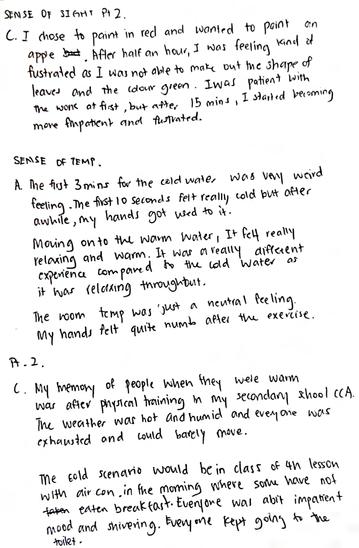 SENSE OF SIGHT Pt 2.
C. I chose to paint in red and wanted to paint an
apple. After half an hour, I was feeling kind of
fustrated as I was not able to make out the shape of
leaves and the colour green. I was patient with
the work at first, but after 15 mins, I started becoming
more impatient and fustrated.
SENSE OF TEMP.
A. The first 3 mins for the cold water was very weird
feeling. The first 10 seconds felt really cold but after
awhile, my hands got used to it.
Moving onto the warm water, It felt really
relaxing and warm. It was a really different
experience compared to the cold water as
it was relaxing throughout.
The room temp was just a neutral feeling.
My hands felt quite numb after the exercise.
Pt. 2.
C. My memory of people when they were warm
was after physical training in my secondary school CCA.
The weather was hot and humid and everyone was
exhausted and could barely move.
The cold scenario would be in class of 4n lesson
with air con, in the morning where some have not
taken eaten breakfast. Everyone was abit impatient
mood and shivering. Everyone kept going to the
toilet.